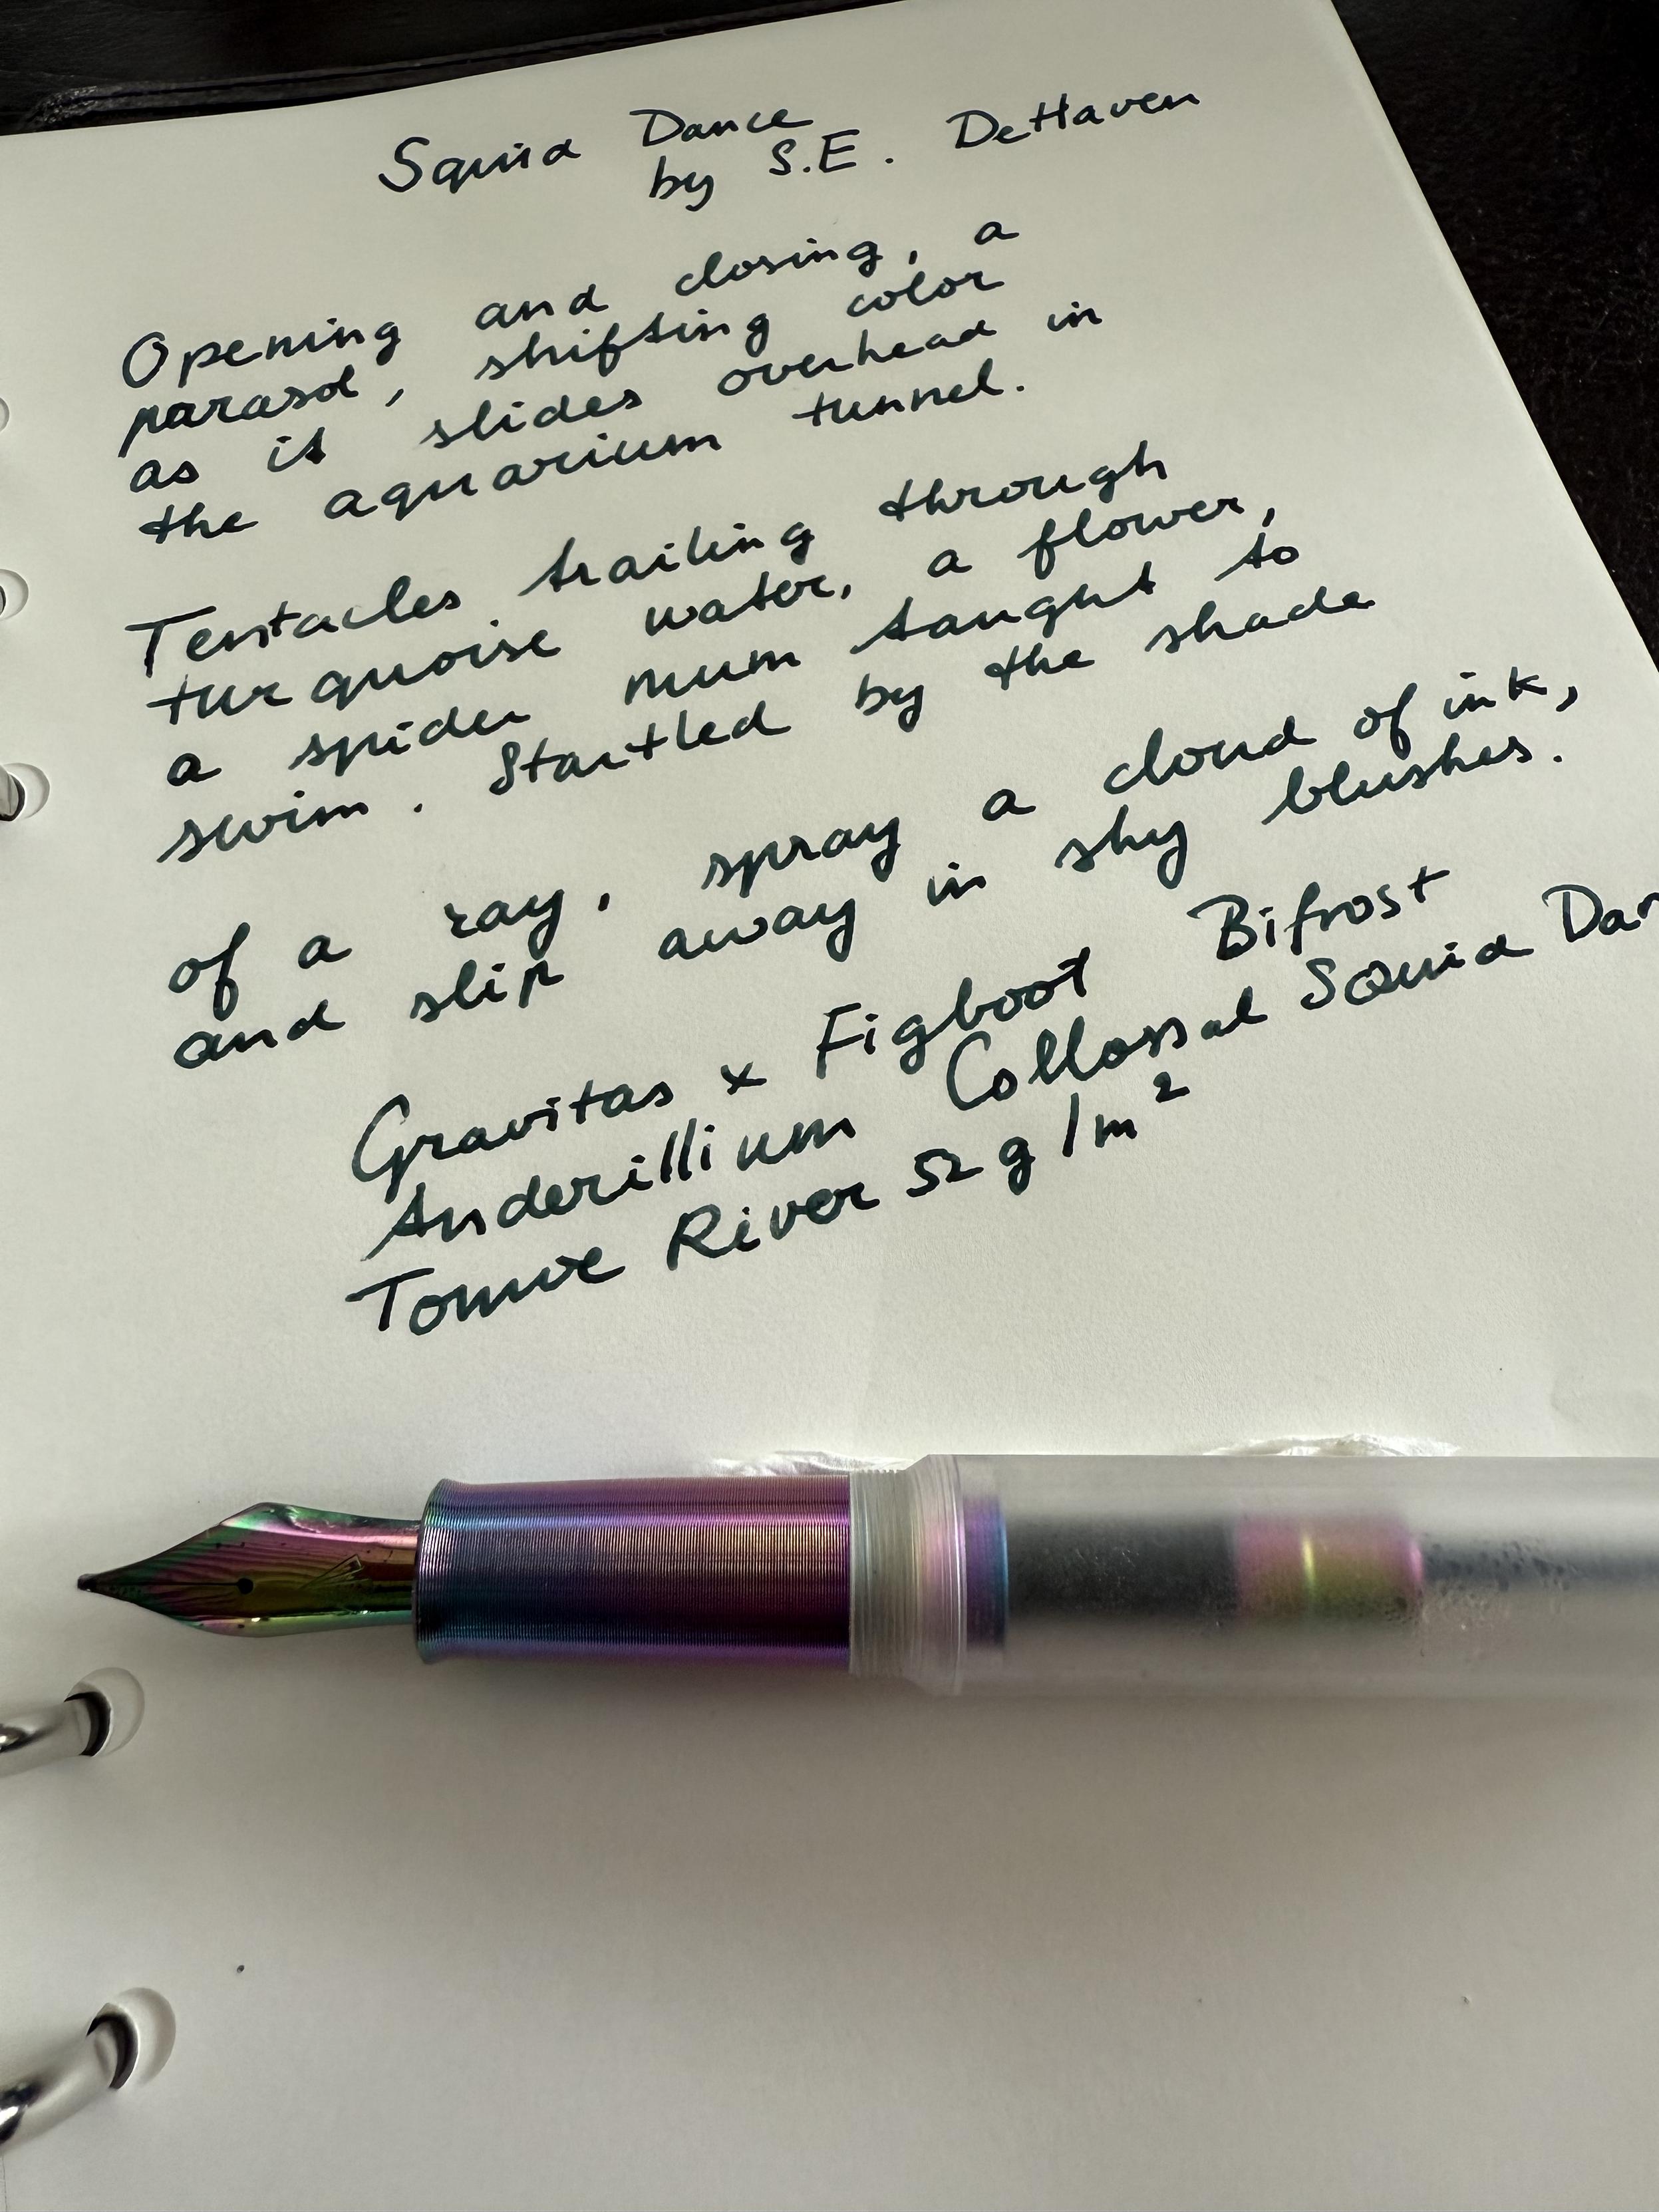 Squid Dance
by S.E. DeHaven
Opening and closing, a
parasol, shifting color
as it slides overhead in
the aquarium tunnel.
Tentacles trailing through
turquoise water, a flower,
a spider mum taught to
swim. Startled by the shade
of a ray, spray a cloud of ink,
and slip away in shy blushes.
Gravitas x Figboot Bifrost
Anderillium Collossal Squid Dan
Tomoe River 52 g/m²